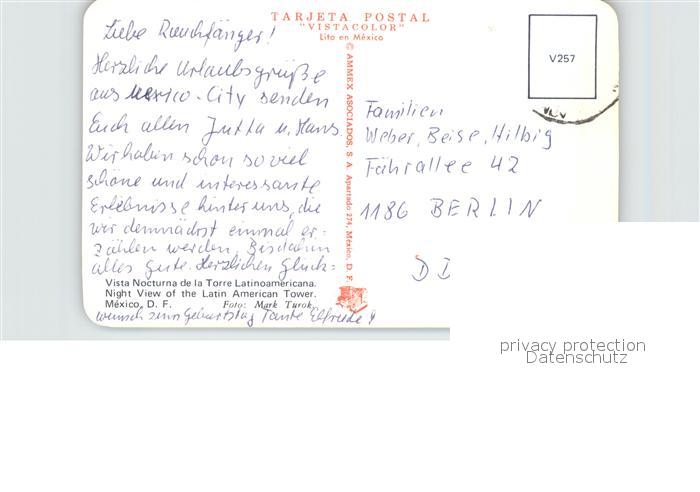 TARJETA POSTAL
"VISTACOLOR"
Lito en México
Liebe Rauchfänger!
Herzliche Urlaubsgrüße
aus Mexico-City senden
Euch allen Jutta u. Hans.
Wir haben schon soviel
schöne und interessante
Erlebnisse hinter uns, die
wir demnächst einmal er-
zählen werden. Bis dahin
alles Gute. Herzlichen Glück=
wunsch zum Geburtstag Tante Elfriede!
Vista Nocturna de la Torre Latinoamericana.
Night View of the Latin American Tower.
México, D. F. Foto: Mark Turok
© AMMEX ASOCIADOS, S. A. Apartado 274, México, D. F.
V257
Familien
Weber, Beise, Hilbig
Fährallee 42
1186 BERLIN
DD
privacy protection
Datenschutz